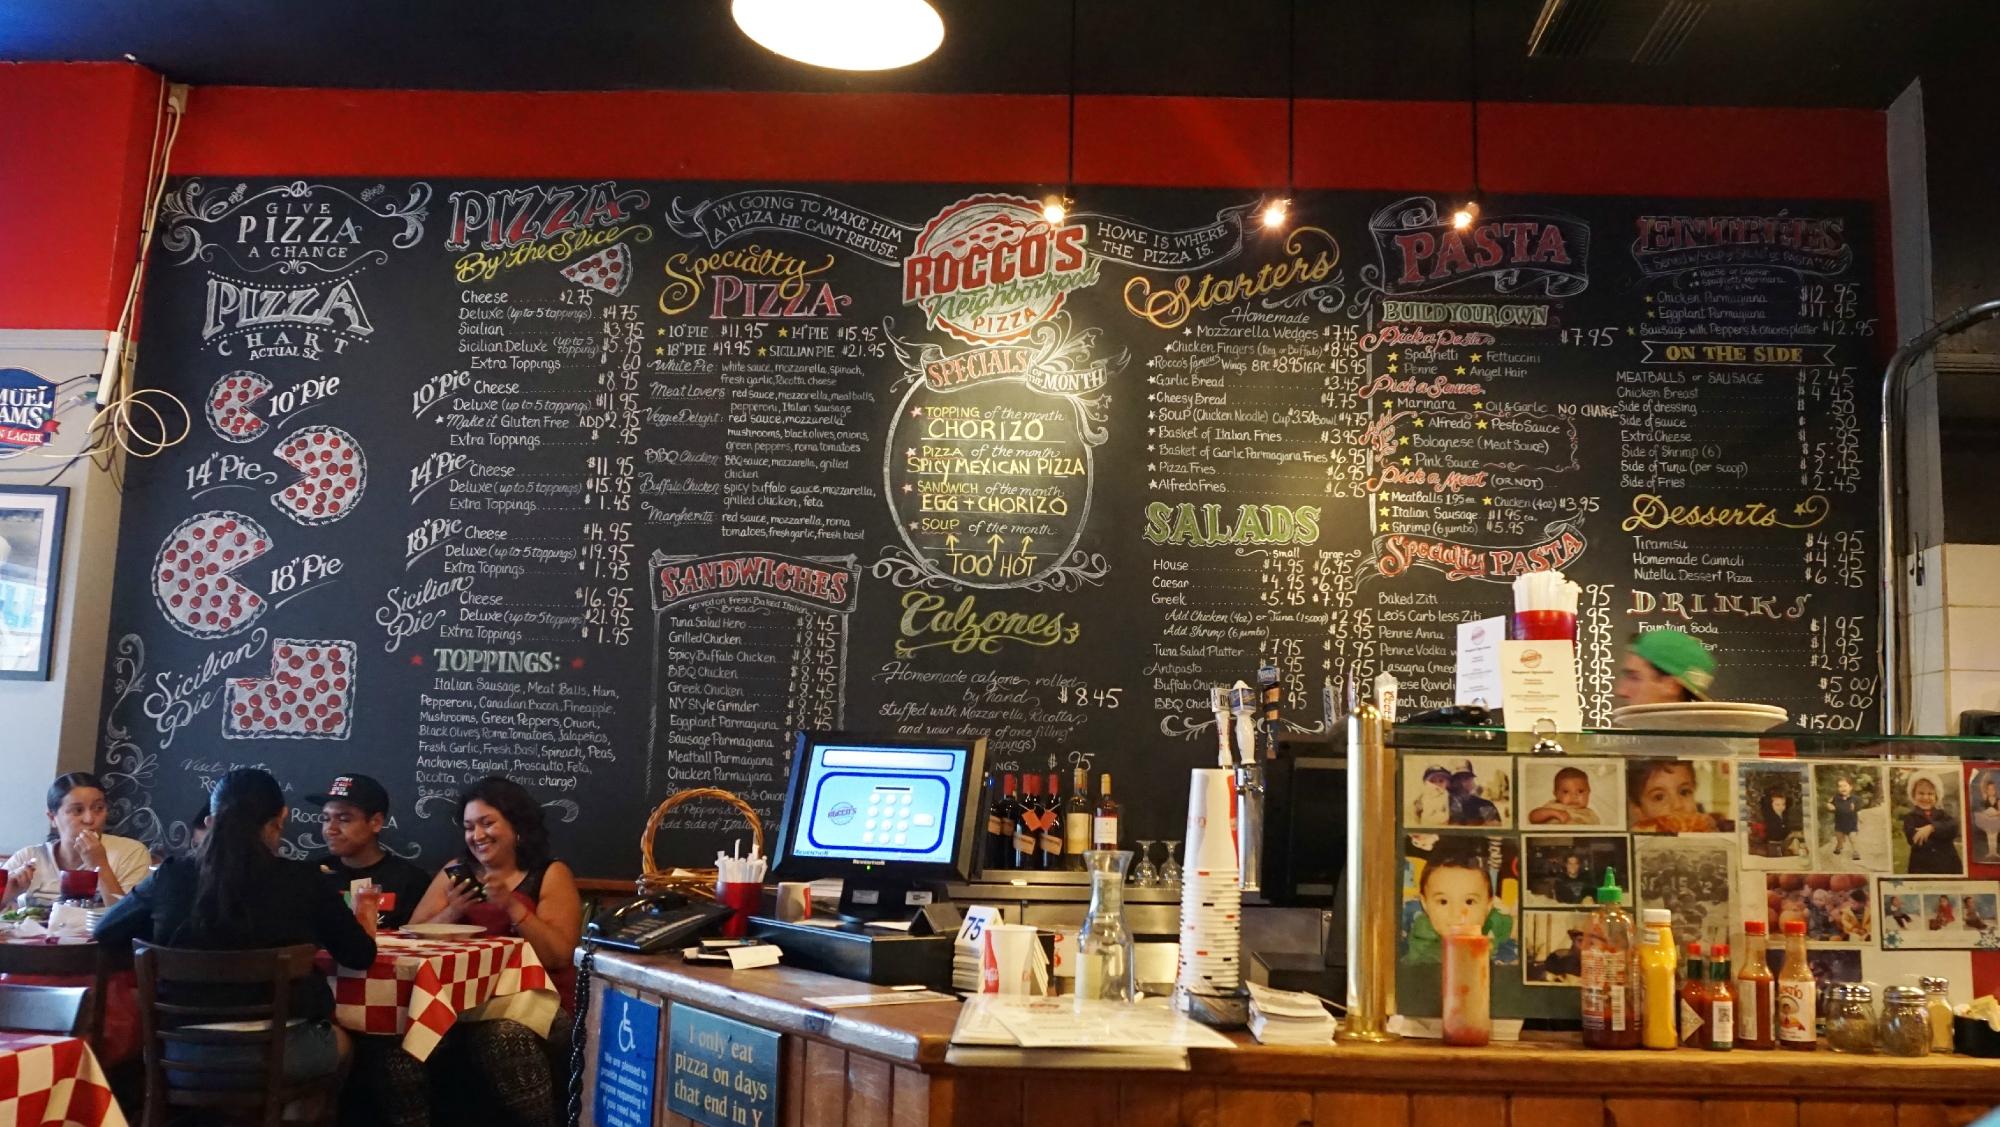 GIVE
PIZZA
A CHANCE
PIZZA
CHART
ACTUAL SZ.
10" Pie
14" Pie
18" Pie
Sicilian
Pie
PIZZA
By the Slice
Cheese $2.75
Deluxe (up to 5 toppings) $4.75
Sicilian $3.95
Sicilian Deluxe (up to 5 topping) $5.95
Extra Toppings .60
10" Pie
Cheese $8.95
Deluxe (up to 5 toppings) $11.95
*Make it Gluten Free ADD $2.95
Extra Toppings .95
14" Pie
Cheese $11.95
Deluxe (up to 5 toppings) $15.95
Extra Toppings $1.45
18" Pie
Cheese $14.95
Deluxe (up to 5 toppings) $19.95
Extra Toppings $1.95
Sicilian Pie
Cheese $16.95
Deluxe (up to 5 toppings) $21.95
Extra Toppings $1.95
TOPPINGS:
Italian Sausage, Meat Balls, Ham,
Pepperoni, Canadian Bacon, Pineapple,
Mushrooms, Green Peppers, Onion,
Black Olives, Roma Tomatoes, Jalapeños,
Fresh Garlic, Fresh Basil, Spinach, Peas,
Anchovies, Eggplant, Prosciutto, Feta,
Ricotta, (Extra charge)
Bacon
I'M GOING TO MAKE HIM
A PIZZA HE CAN'T REFUSE.
Specialty
PIZZA
10" PIE $11.95 14" PIE $15.95
18" PIE $19.95 SICILIAN PIE $21.95
White Pie: white sauce, mozzarella, spinach,
fresh garlic, Ricotta cheese
Meat Lovers: red sauce, mozzarella, meatballs,
pepperoni, Italian sausage
Veggie Delight: red sauce, mozzarella,
mushrooms, black olives, onions,
green peppers, roma tomatoes
BBQ Chicken: BBQ sauce, mozzarella, grilled
chicken
Buffalo Chicken: spicy buffalo sauce, mozzarella,
grilled chicken, feta
Margherita: red sauce, mozzarella, roma
tomatoes, fresh garlic, fresh basil
SANDWICHES
Served on Fresh Baked Italian
Bread
Tuna Salad Hero $8.45
Grilled Chicken $8.45
Spicy Buffalo Chicken $8.45
BBQ Chicken $8.45
Greek Chicken $8.45
NY Style Grinder $8.45
Eggplant Parmagiana $8.45
Sausage Parmagiana
Meatball Parmagiana
Chicken Parmagiana
ROCCO'S
Neighborhood
PIZZA
SPECIALS
OF THE MONTH
TOPPING of the month
CHORIZO
PIZZA of the month
SPICY MEXICAN PIZZA
SANDWICH of the month
EGG + CHORIZO
SOUP of the month
TOO HOT
Calzones
Homemade calzone rolled
by hand $8.45
stuffed with Mozzarella, Ricotta
and your choice of one filling*
HOME IS WHERE
THE PIZZA IS.
Starters
Homemade
Mozzarella Wedges $7.45
Chicken Fingers (Reg or Buffalo) $8.45
Rocco's famous Wings 8PC $8.95 16PC $15.95
Garlic Bread $3.45
Cheesy Bread $4.75
SOUP (Chicken Noodle) Cup $3.50 Bowl $4.75
Basket of Italian Fries $3.95
Basket of Garlic Parmagiana Fries $6.95
Pizza Fries $6.95
Alfredo Fries $6.95
SALADS
small large
House $4.95 $6.95
Caesar $4.95 $6.95
Greek $5.45 $7.95
Add Chicken (4oz) or Tuna (1 scoop) $2.95
Add Shrimp (6 jumbo) $5.95
Tuna Salad Platter $7.95 $9.95
Antipasto
Buffalo Chicken
BBQ Chick
PASTA
BUILD YOUR OWN
Pick a Pasta $7.95
Spaghetti Fettuccini
Penne Angel Hair
Pick a Sauce
Marinara Oil & Garlic NO CHARGE
Alfredo Pesto Sauce
Bolognese (Meat Sauce)
Pink Sauce
Pick a Meat (OR NOT)
Meatballs 1.95 ea. Chicken (4oz) $3.95
Italian Sausage $1.95 ea.
Shrimp (6 jumbo) $5.95
Specialty PASTA
Baked Ziti
Leo's Carb-less Ziti
Penne Annu
Penne Vodka
Lasagna (meat
ese Ravioli
ach Ravioli
ENTRÉES
SERVED W/SOUP or SALAD or PASTA
House or Caesar
Spaghetti Marinara
Chicken Parmagiana $12.95
Eggplant Parmagiana $11.95
Sausage with Peppers & Onions platter $12.95
ON THE SIDE
MEATBALLS OR SAUSAGE $2.45
Chicken Breast $4.45
Side of dressing .50
Side of sauce .50
Extra Cheese .95
Side of Shrimp (6)
Side of Tuna (per scoop) $2.45
Side of Fries $2.45
Desserts
Tiramisu $4.95
Homemade Cannoli $4.45
Nutella Dessert Pizza $6.95
DRINKS
Fountain Soda $1.95
$2.95
$5.00/
$6.00/
$15.00/
MUEL
AMS
N LAGER
ROCCO'S
REVENTION
75
We are pleased to
provide assistance to
anyone requesting it.
I only eat
pizza on days
that end in Y